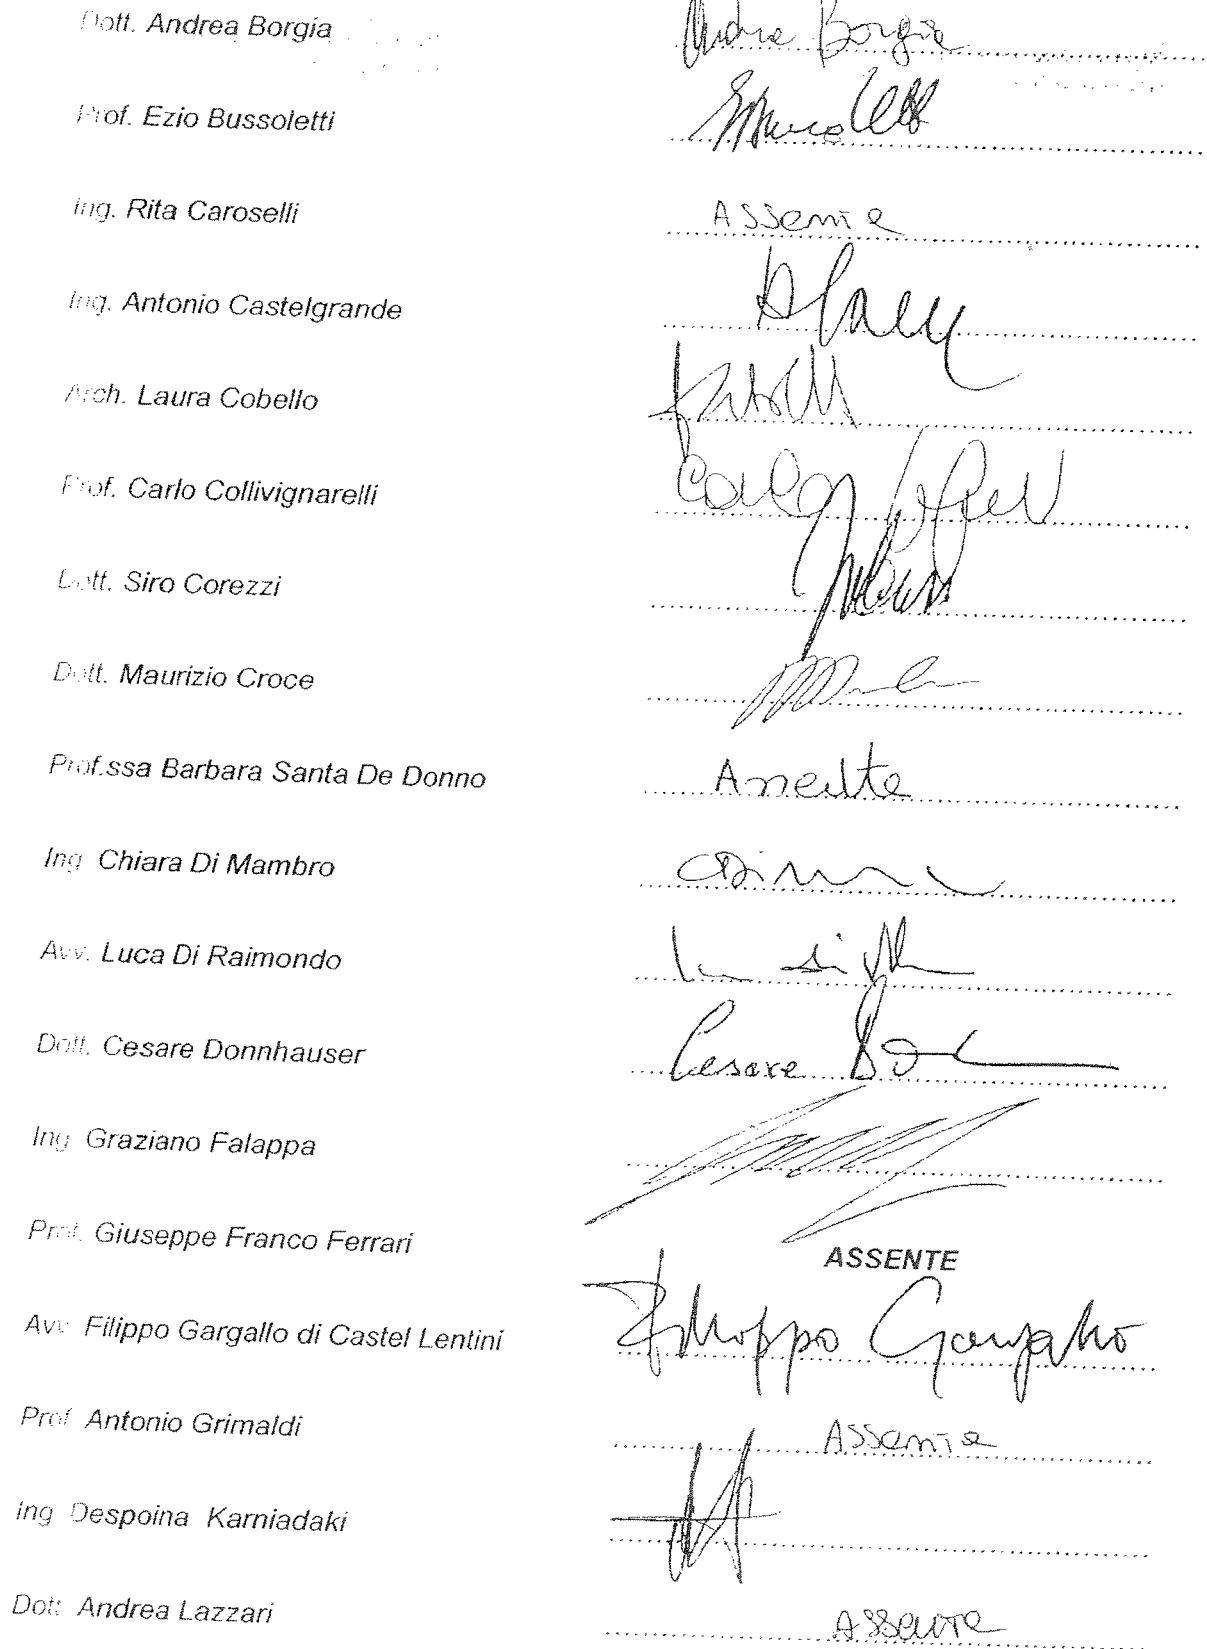 Dott. Andrea Borgia Andrea Borgia
Prof. Ezio Bussoletti
Ing. Rita Caroselli Assente
Ing. Antonio Castelgrande
Arch. Laura Cobello
Prof. Carlo Collivignarelli Carlo
Dott. Siro Corezzi
Dott. Maurizio Croce
Prof.ssa Barbara Santa De Donno Assente
Ing Chiara Di Mambro
Avv. Luca Di Raimondo
Dott. Cesare Donnhauser Cesare
Ing Graziano Falappa
Prof. Giuseppe Franco Ferrari ASSENTE
Avv Filippo Gargallo di Castel Lentini Filippo Gargallo
Prof Antonio Grimaldi Assente
Ing Despoina Karniadaki
Dott Andrea Lazzari Assente